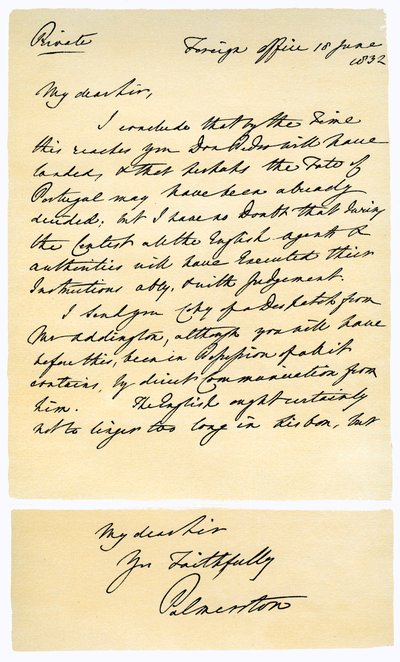 Private
Foreign office 18 June
1832
My dear Sir,
I conclude that by the Time
this reaches you Don Pedro will have
landed, & that perhaps the Fate of
Portugal may have been already
decided. but I have no Doubt that during
the Contest all the English agents &
authorities will have Executed their
Instructions ably, & with Judgement.
I send you Copy of a Despatch from
Mr Addington, although you will have
before this, been in Possession of all it
contains, by direct Communication from
him. The English ought certainly
not to linger too long in Lisbon, but
My dear Sir
Yrs Faithfully
Palmerston